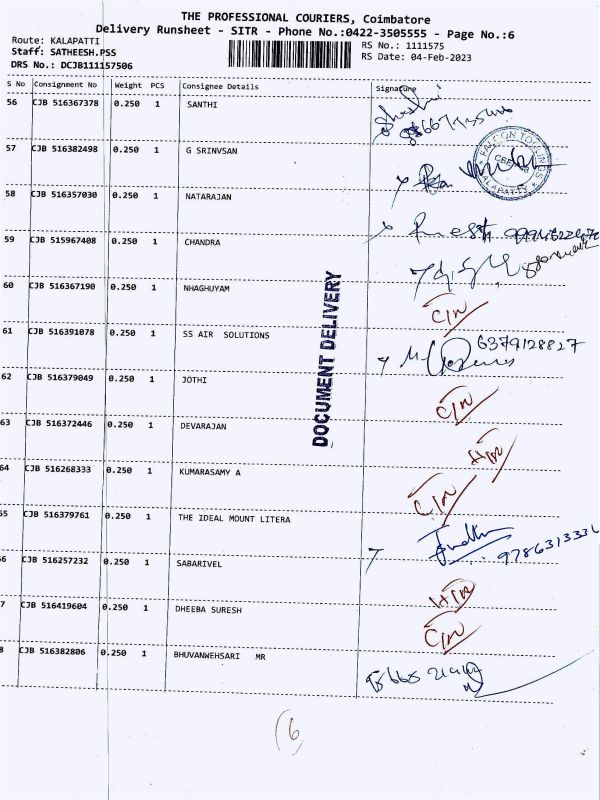 THE PROFESSIONAL COURIERS, Coimbatore
Delivery Runsheet - SITR - Phone No.:0422-3505555 - Page No.:6
Route: KALAPATTI
RS No.: 1111575
Staff: SATHEESH.PSS
RS Date: 04-Feb-2023
DRS No.: DCJB111157506
S No Consignment No Weight PCS Consignee Details Signature
56 CJB 516367378 0.250 1 SANTHI
57 CJB 516382498 0.250 1 G SRINVSAN
FALCON TOOLINGS
58 CJB 516357030 0.250 1 NATARAJAN
59 CJB 515967408 0.250 1 CHANDRA
60 CJB 516367190 0.250 1 NHAGHUYAM C/N
61 CJB 516391078 0.250 1 SS AIR SOLUTIONS 6379128827
62 CJB 516379049 0.250 1 JOTHI C/N
63 CJB 516372446 0.250 1 DEVARAJAN
64 CJB 516268333 0.250 1 KUMARASAMY A C/N
55 CJB 516379761 0.250 1 THE IDEAL MOUNT LITERA
56 CJB 516257232 0.250 1 SABARIVEL
7 CJB 516419604 0.250 1 DHEEBA SURESH C/N
8 CJB 516382806 0.250 1 BHUVANWEHSARI MR
DOCUMENT DELIVERY
6